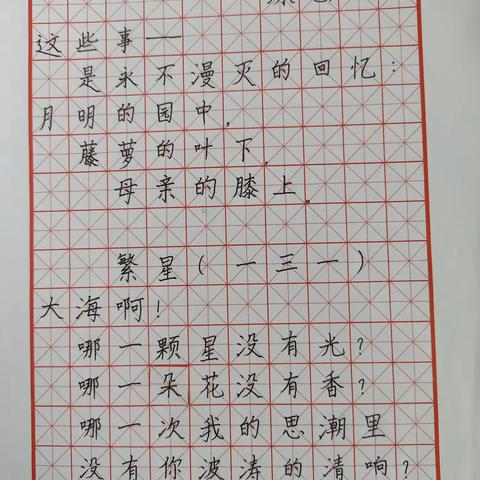 这些事——
是永不漫灭的回忆：
月明的园中，
藤萝的叶下，
母亲的膝上。
繁星（一三一）
大海啊！
哪一颗星没有光？
哪一朵花没有香？
哪一次我的思潮里
没有你波涛的清响？